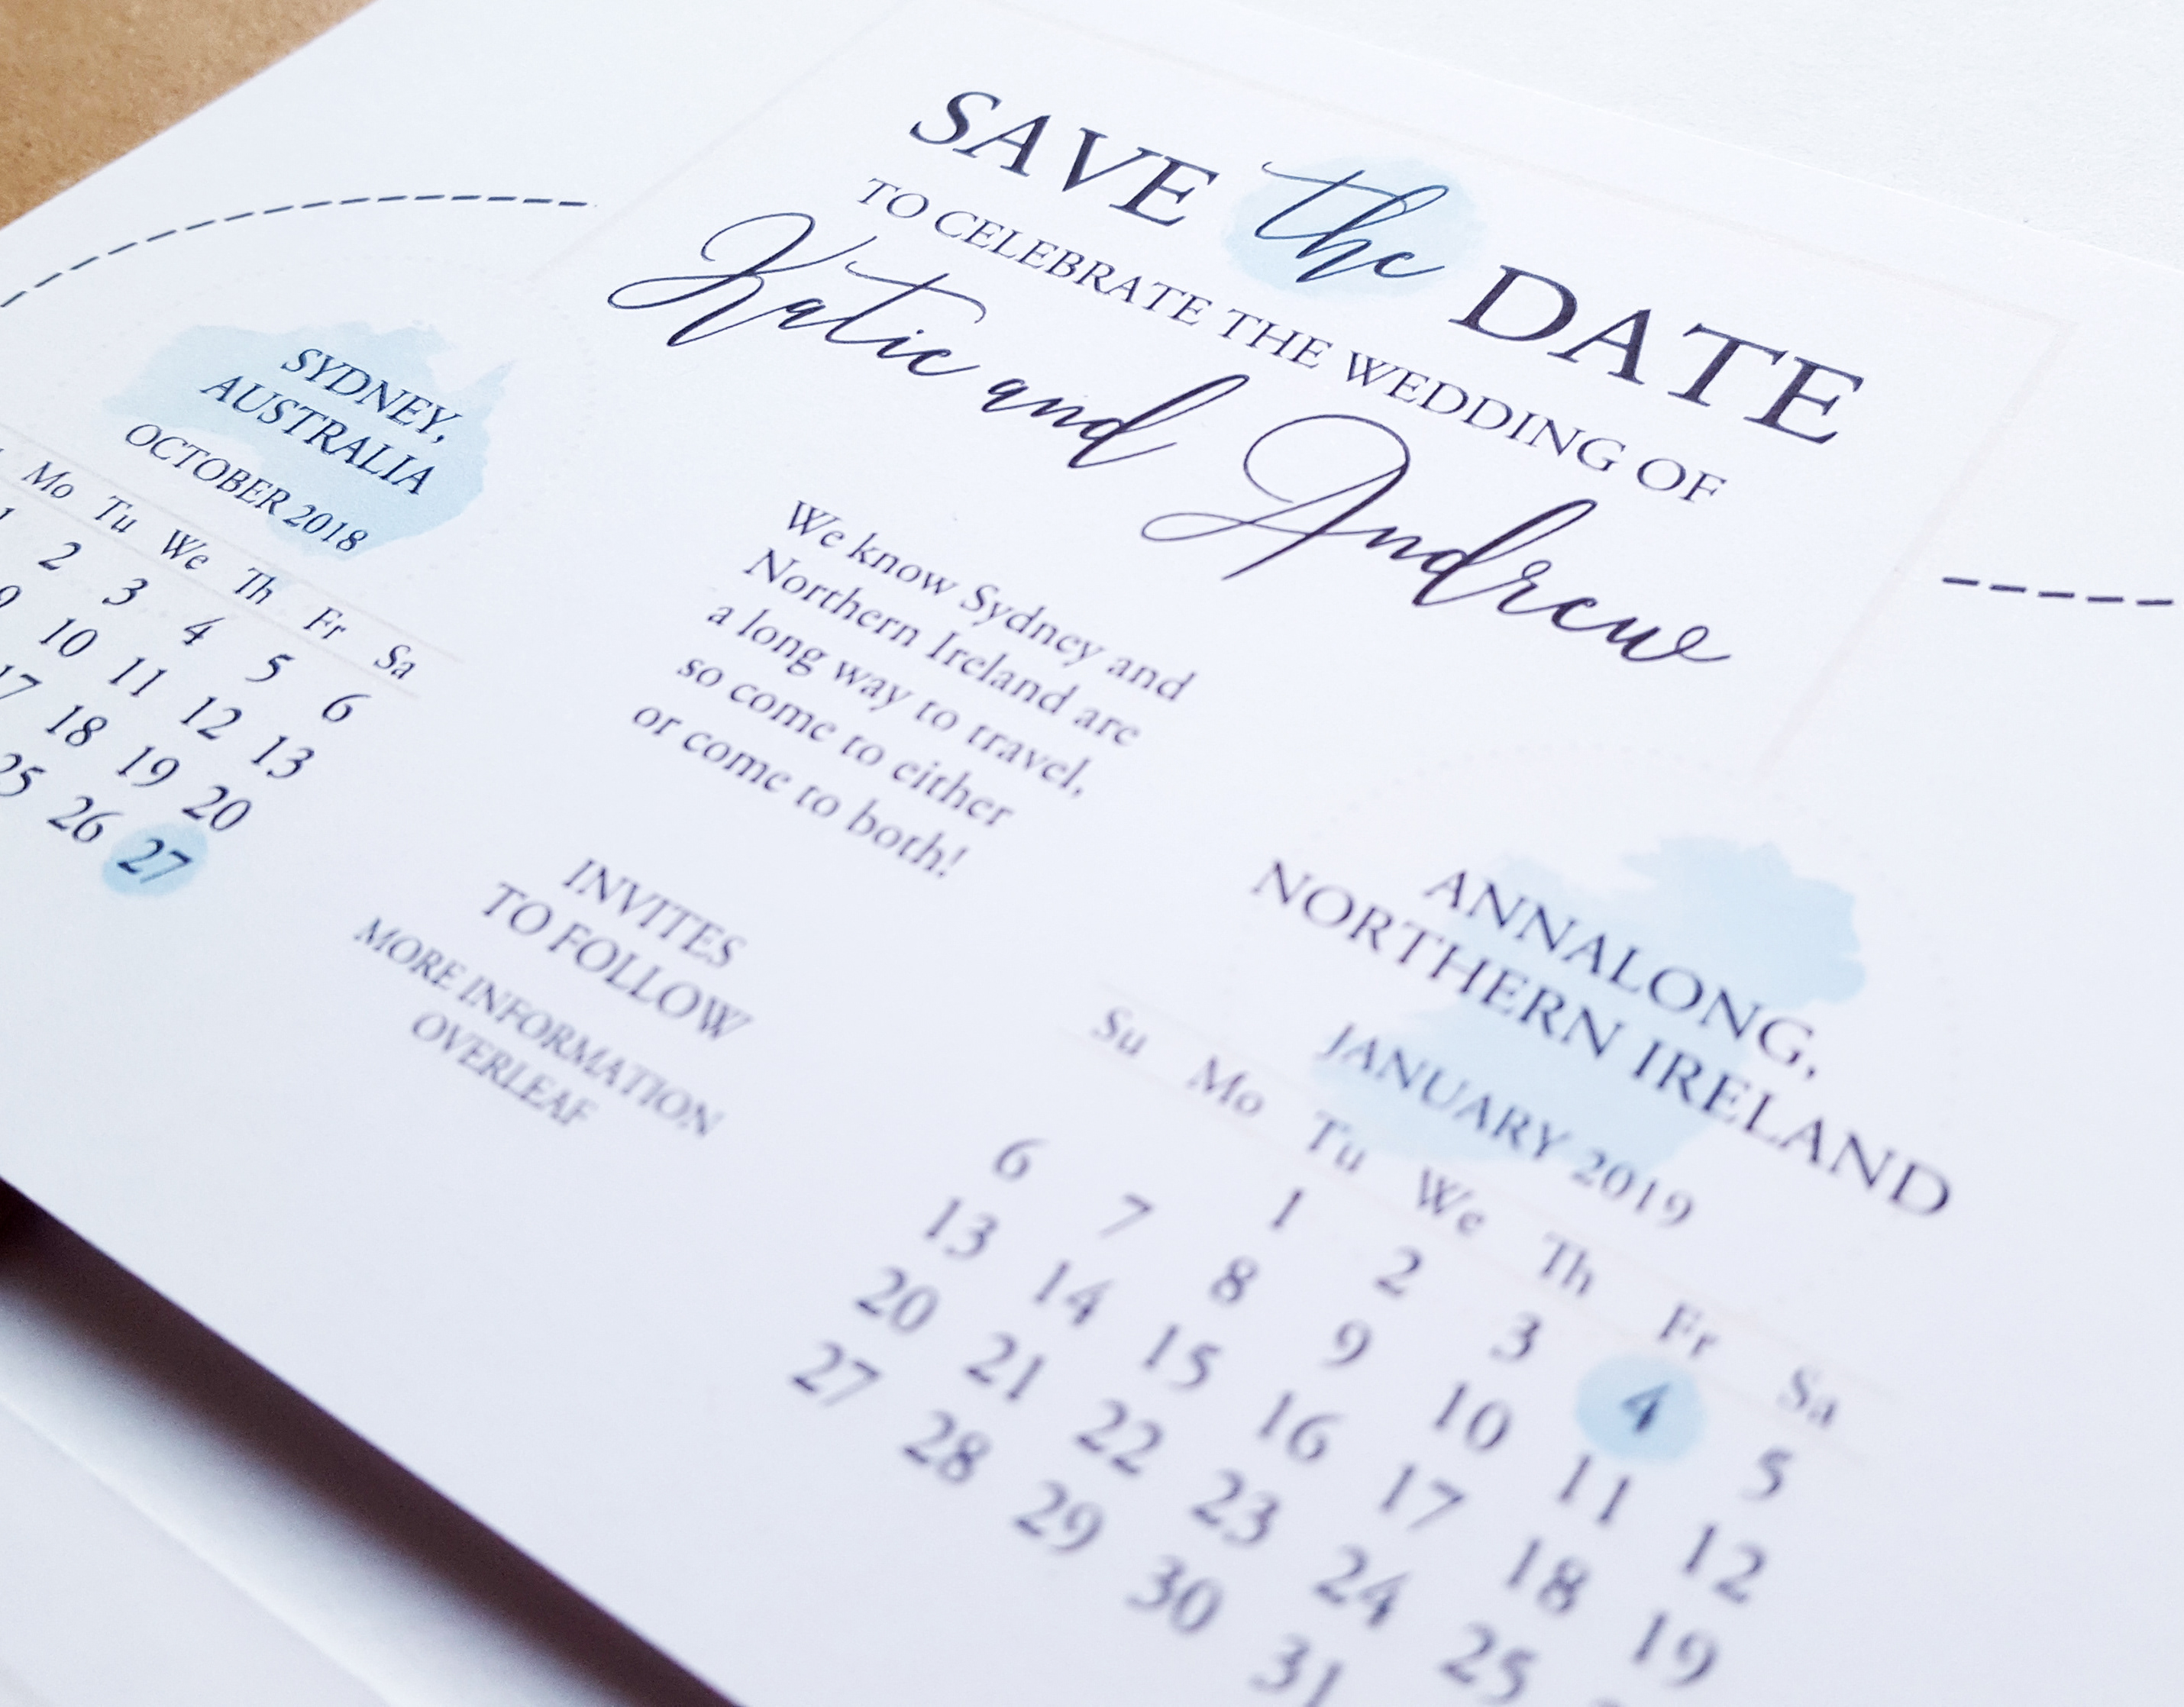 SAVE the DATE
TO CELEBRATE THE WEDDING OF
Katie and Andrew
SYDNEY,
AUSTRALIA
OCTOBER 2018
Mo Tu We Th Fr Sa
1 2 3 4 5 6
9 10 11 12 13
17 18 19 20
25 26 27
We know Sydney and
Northern Ireland are
a long way to travel,
so come to either
or come to both!
INVITES
TO FOLLOW
MORE INFORMATION
OVERLEAF
ANNALONG,
NORTHERN IRELAND
JANUARY 2019
Su Mo Tu We Th Fr Sa
1 2 3 4 5
6 7 8 9 10 11 12
13 14 15 16 17 18 19
20 21 22 23 24 25
27 28 29 30 31